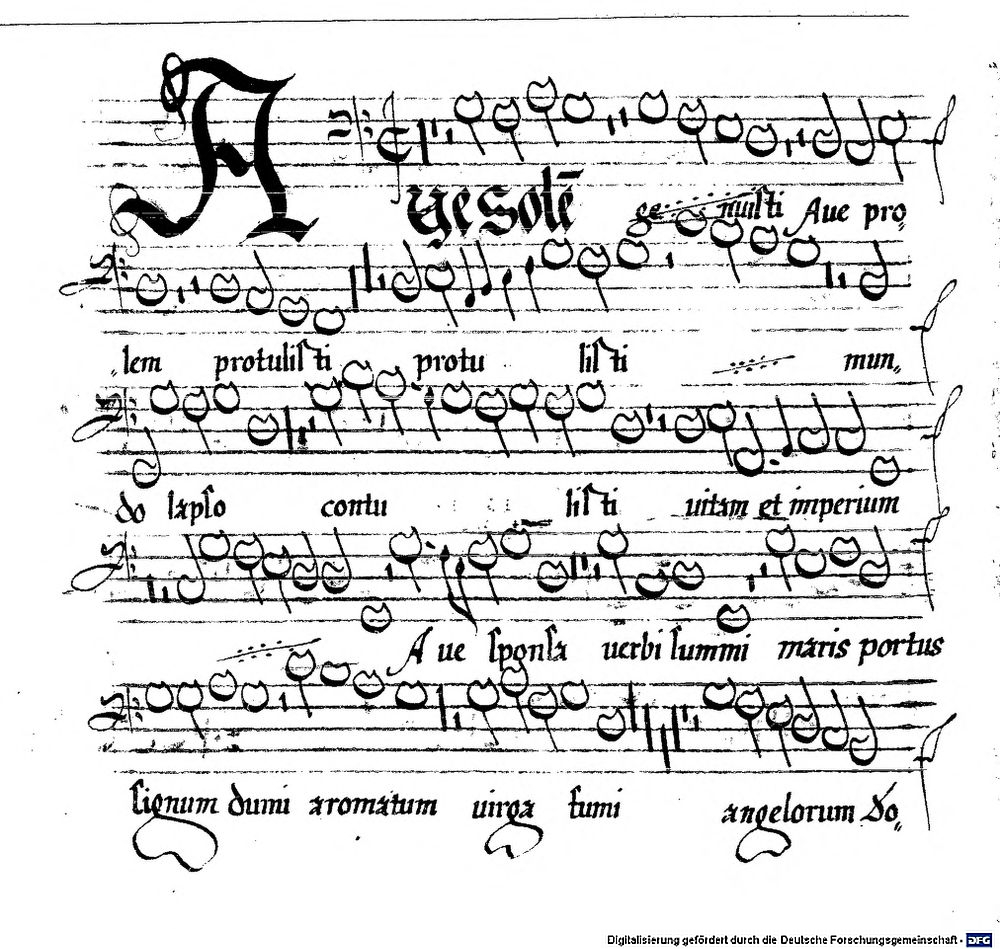 A
ve Solē genuisti Aue pro„
„lem protulisti protu listi mun„
do lapso contu listi uitam et imperium
Aue sponsa uerbi summi maris portus
signum dumi aromatum uirga fumi angelorum do„
Digitalisierung gefördert durch die Deutsche Forschungsgemeinschaft - DFG